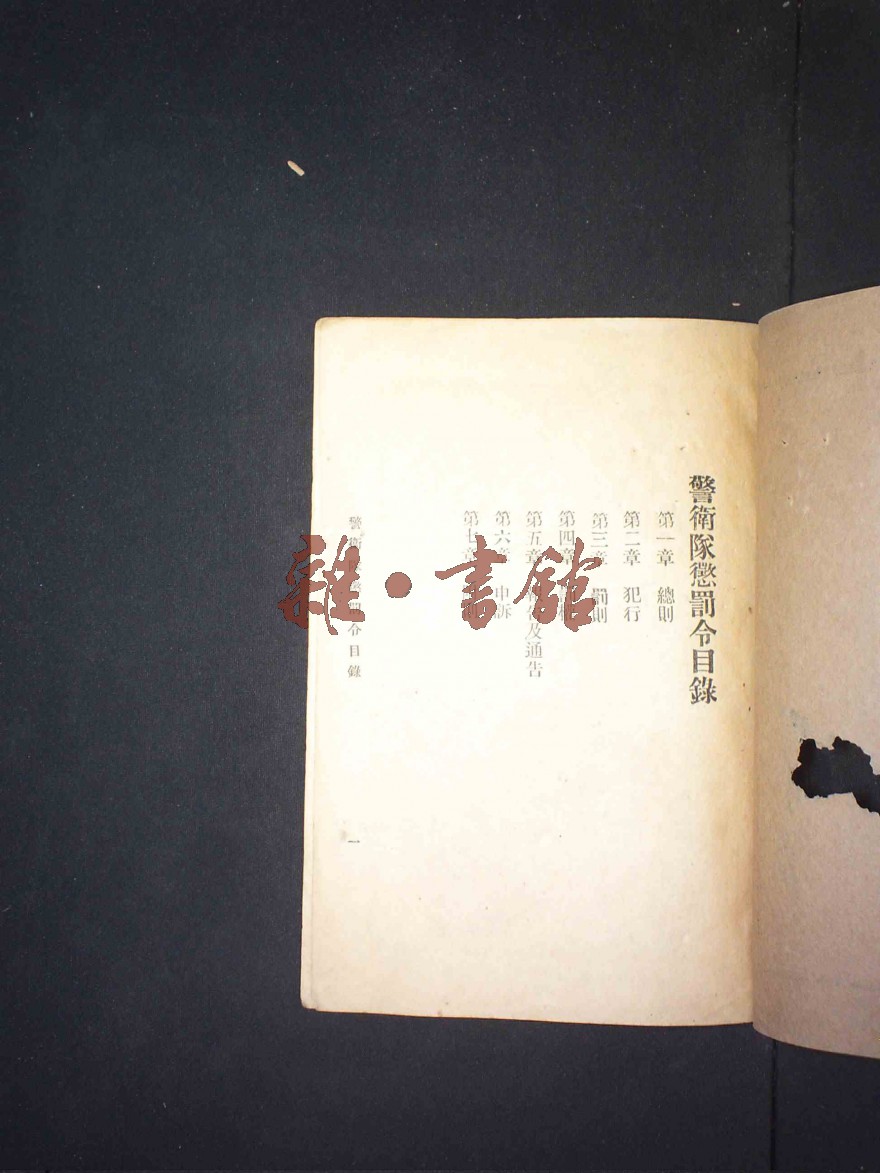 警衛隊懲罰令目錄
第一章 總則
第二章 犯行
第三章 罰則
第四章
第五章 告及通告
第六章 申訴
第七章
警衛 令目錄
一
雜·書館